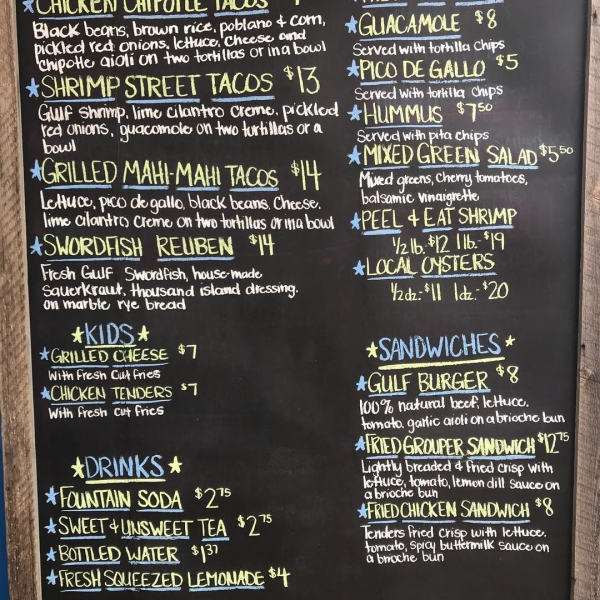 CHICKEN CHIPOTLE TACOS
Black beans, brown rice, poblano & corn,
pickled red onions, lettuce, cheese and
chipotle aioli on two tortillas or in a bowl
SHRIMP STREET TACOS $13
Gulf shrimp, lime cilantro creme, pickled
red onions, guacamole on two tortillas or a
bowl
GRILLED MAHI-MAHI TACOS $14
Lettuce, pico de gallo, black beans, cheese,
lime cilantro creme on two tortillas or in a bowl
SWORDFISH REUBEN $14
Fresh Gulf Swordfish, house-made
Sauerkraut, thousand island dressing.
on marble rye bread
KIDS
GRILLED CHEESE $7
With fresh cut fries
CHICKEN TENDERS $7
With fresh cut fries
DRINKS
FOUNTAIN SODA $2 75
SWEET & UNSWEET TEA $2 75
BOTTLED WATER $1 37
FRESH SQUEEZED LEMONADE $4
GUACAMOLE $8
Served with tortilla chips
PICO DE GALLO $5
Served with tortilla chips
HUMMUS $7 50
Served with pita chips
MIXED GREEN SALAD $5 50
Mixed greens, cherry tomatoes,
balsamic vinaigrette
PEEL & EAT SHRIMP
1/2 lb. $12 1 lb.- $19
LOCAL OYSTERS
1/2 dz.- $11 1dz.- $20
SANDWICHES
GULF BURGER $8
100% natural beef, lettuce,
tomato, garlic aioli on a brioche bun
FRIED GROUPER SANDWICH $12 75
Lightly breaded & fried crisp with
lettuce, tomato, lemon dill sauce on
a brioche bun
FRIED CHICKEN SANDWICH $8
Tenders fried crisp with lettuce,
tomato, spicy buttermilk sauce on
a brioche bun